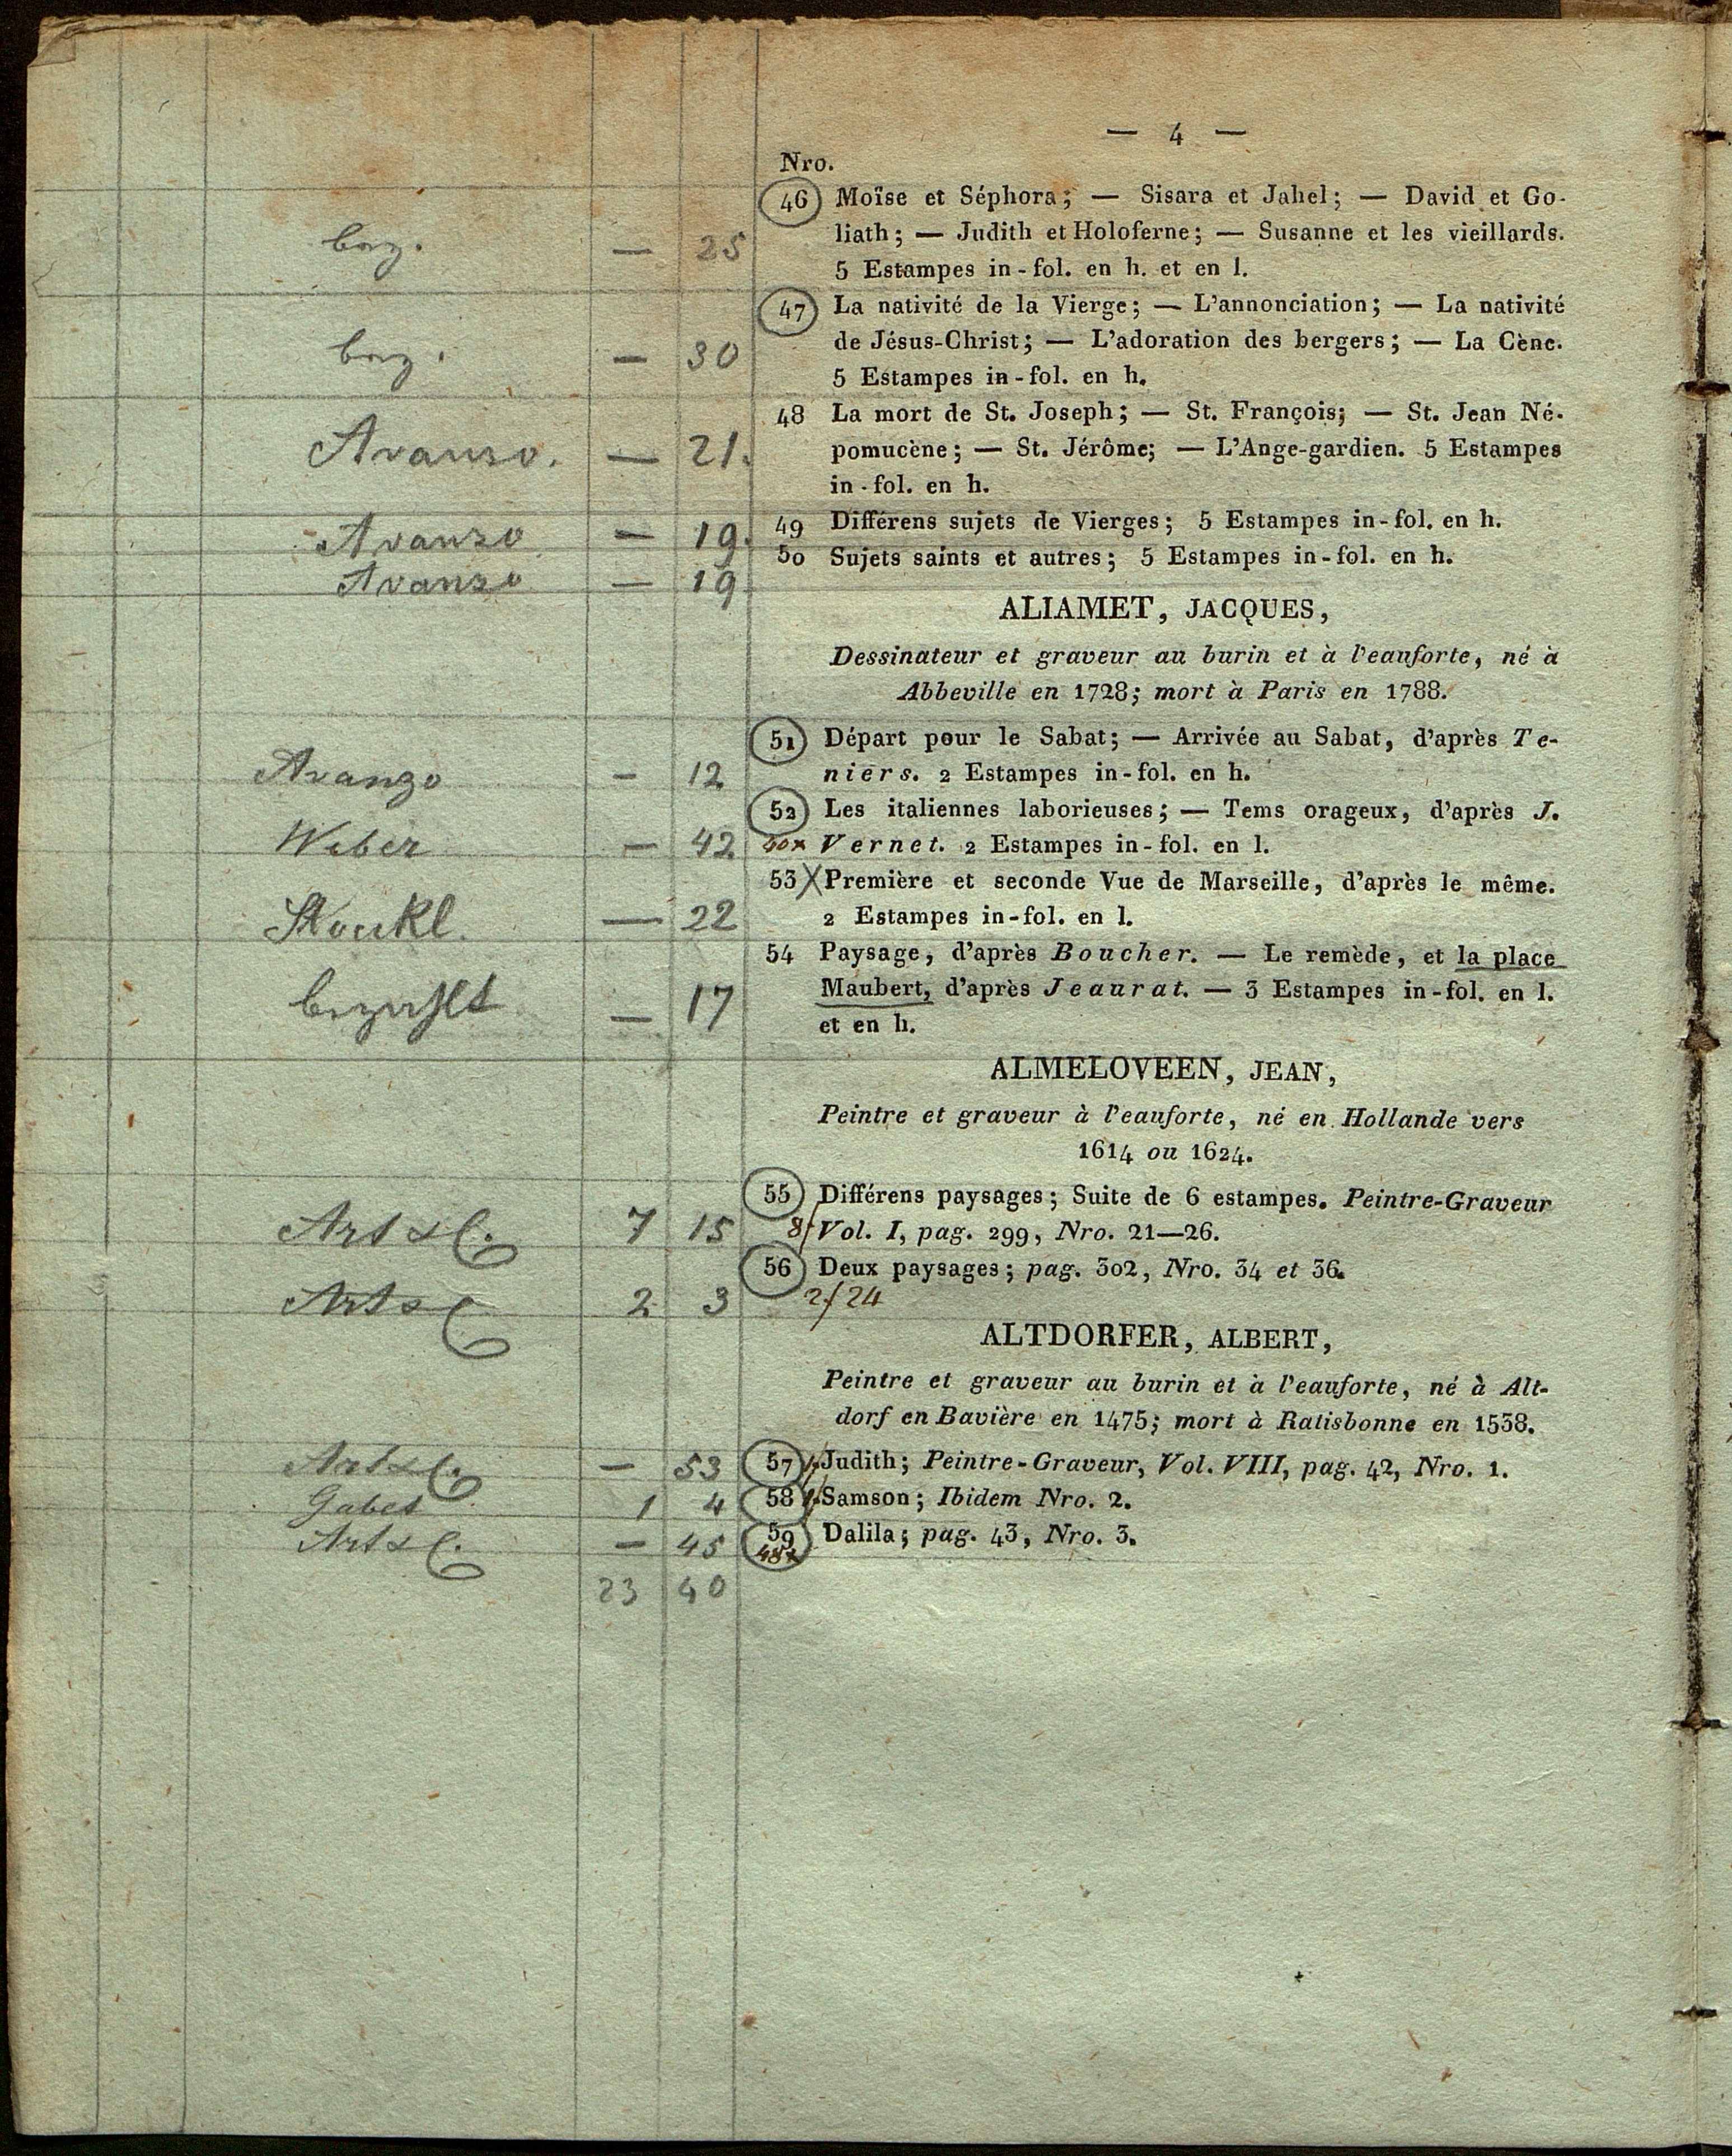 — 4 —
Nro.
46 Moïse et Séphora; — Sisara et Jahel; — David et Go-
liath; — Judith et Holoferne; — Susanne et les vieillards.
— 25
5 Estampes in-fol. en h. et en l.
47 La nativité de la Vierge; — L'annonciation; — La nativité
de Jésus-Christ; — L'adoration des bergers; — La Cène.
— 30
5 Estampes in-fol. en h.
48 La mort de St. Joseph; — St. François; — St. Jean Né-
Avanso. — 21.
pomucène; — St. Jérôme; — L'Ange-gardien. 5 Estampes
in-fol. en h.
Avanso — 19.
49 Différens sujets de Vierges; 5 Estampes in-fol. en h.
Avanso — 19
50 Sujets saints et autres; 5 Estampes in-fol. en h.
ALIAMET, JACQUES,
Dessinateur et graveur au burin et à l'eauforte, né à
Abbeville en 1728; mort à Paris en 1788.
51 Départ pour le Sabat; — Arrivée au Sabat, d'après Te-
Avanzo — 12
niers. 2 Estampes in-fol. en h.
52 Les italiennes laborieuses; — Tems orageux, d'après J.
Weber — 42
40x Vernet. 2 Estampes in-fol. en l.
53 X Première et seconde Vue de Marseille, d'après le même.
Stöckl. — 22
2 Estampes in-fol. en l.
54 Paysage, d'après Boucher. — Le remède, et la place
— 17
Maubert, d'après Jeaurat. — 3 Estampes in-fol. en l.
et en h.
ALMELOVEEN, JEAN,
Peintre et graveur à l'eauforte, né en Hollande vers
1614 ou 1624.
55 Différens paysages; Suite de 6 estampes. Peintre-Graveur
Art 7 15
8f Vol. I, pag. 299, Nro. 21—26.
56 Deux paysages; pag. 302, Nro. 34 et 36.
Art 2 3
2f 24
ALTDORFER, ALBERT,
Peintre et graveur au burin et à l'eauforte, né à Alt-
dorf en Bavière en 1475; mort à Ratisbonne en 1538.
Art — 53
57 Judith; Peintre-Graveur, Vol. VIII, pag. 42, Nro. 1.
Gabet 1 4
58 Samson; Ibidem Nro. 2.
Art — 45
59 Dalila; pag. 43, Nro. 3.
48x
23 40